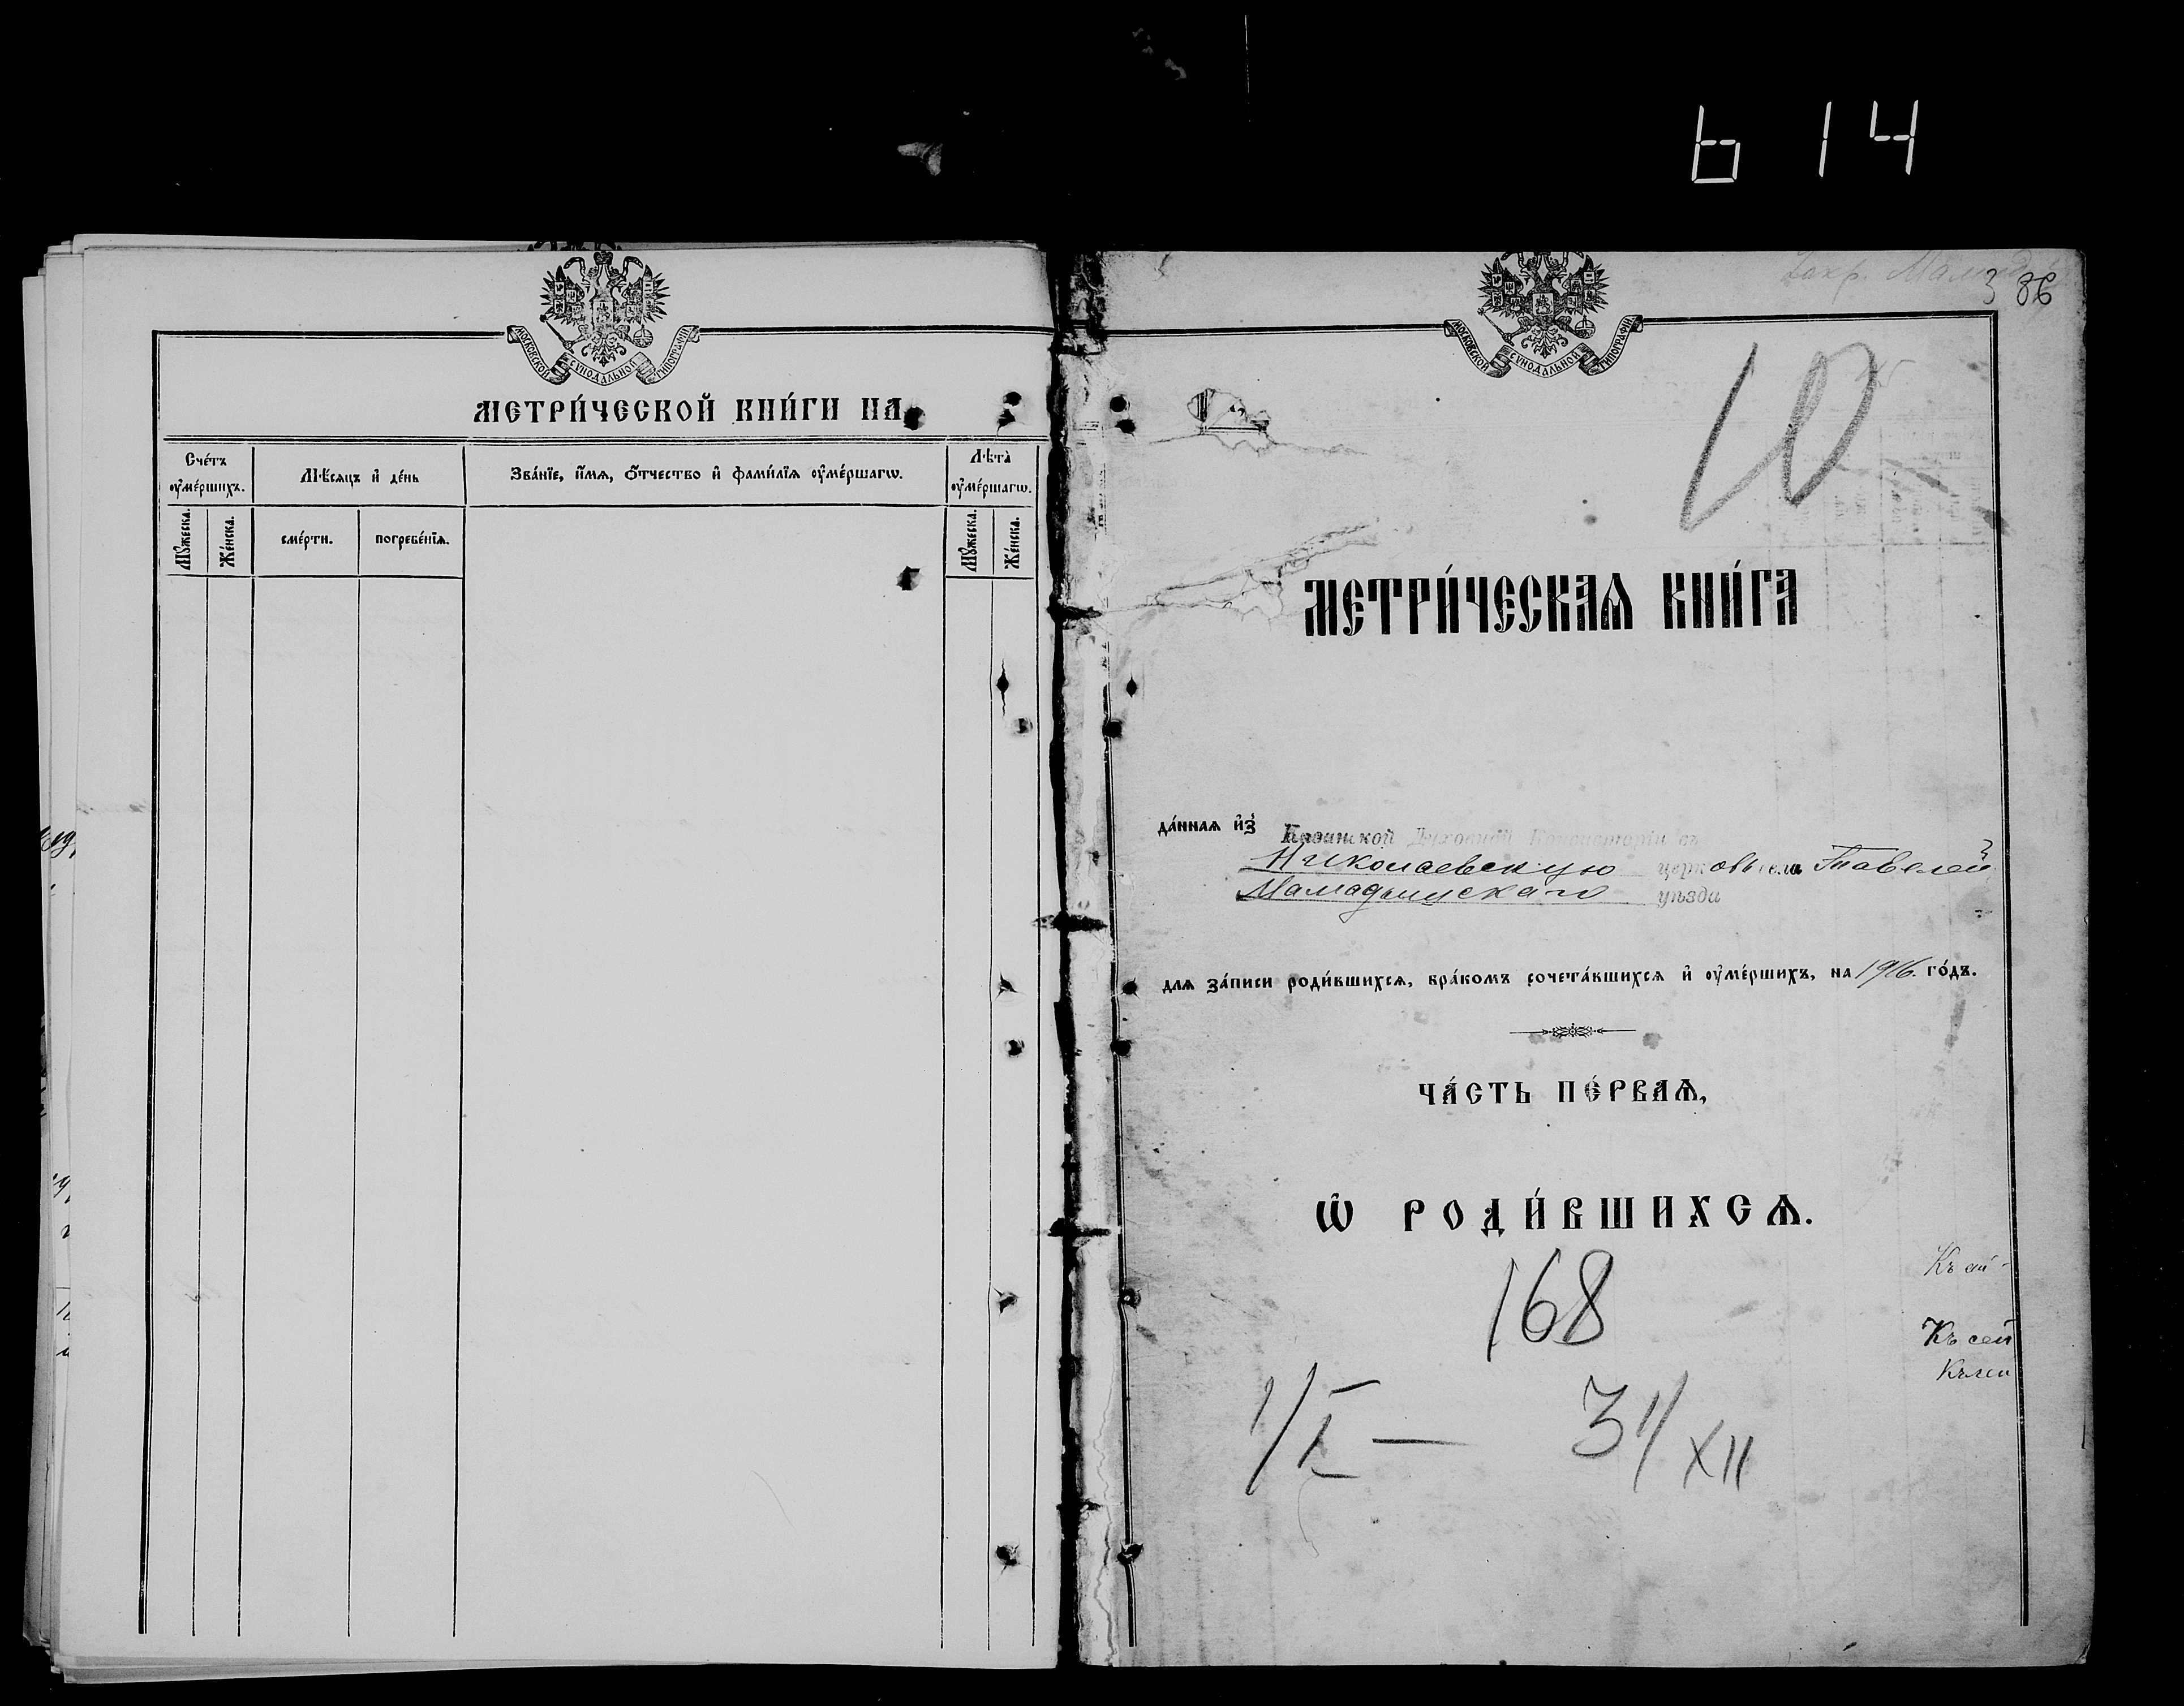 614
МОСКОВСКОЙ СѴНОДАЛЬНОЙ ТИПОГРАФІИ
МЕТРИ́ЧЕСКОЙ КНИ́ГИ НА
Сче́тъ оу҆ме́ршихъ.
Мѣ́сяцъ и҆ де́нь
Зва́нїе, и҆́мѧ, ѻ҆́тчество и҆ фами́лїѧ оу҆ме́ршагѡ.
Лѣ̀та оу҆ме́ршагѡ.
Мꙋ́жеска.
Же́нска.
сме́рти.
погребе́нїѧ.
Мꙋ́жеска.
Же́нска.
386
МОСКОВСКОЙ СѴНОДАЛЬНОЙ ТИПОГРАФІИ
10
МЕТРИ́ЧЕСКАѦ КНИ́ГА
да́ннаѧ и҆з̾ Казанской Духовной Консисторіи въ
Николаевскую церковь села Тавелей
Мамадышскаго уѣзда
для за́писи роди́вшихсѧ, бра́комъ сочета́вшихсѧ и҆ оу҆ме́ршихъ, на 1916 го́дъ.
ЧА́СТЬ ПЕ́РВАѦ,
Ѡ҆ РОДИ́ВШИХСѦ.
168
Къ сей
1/I — 31/XII